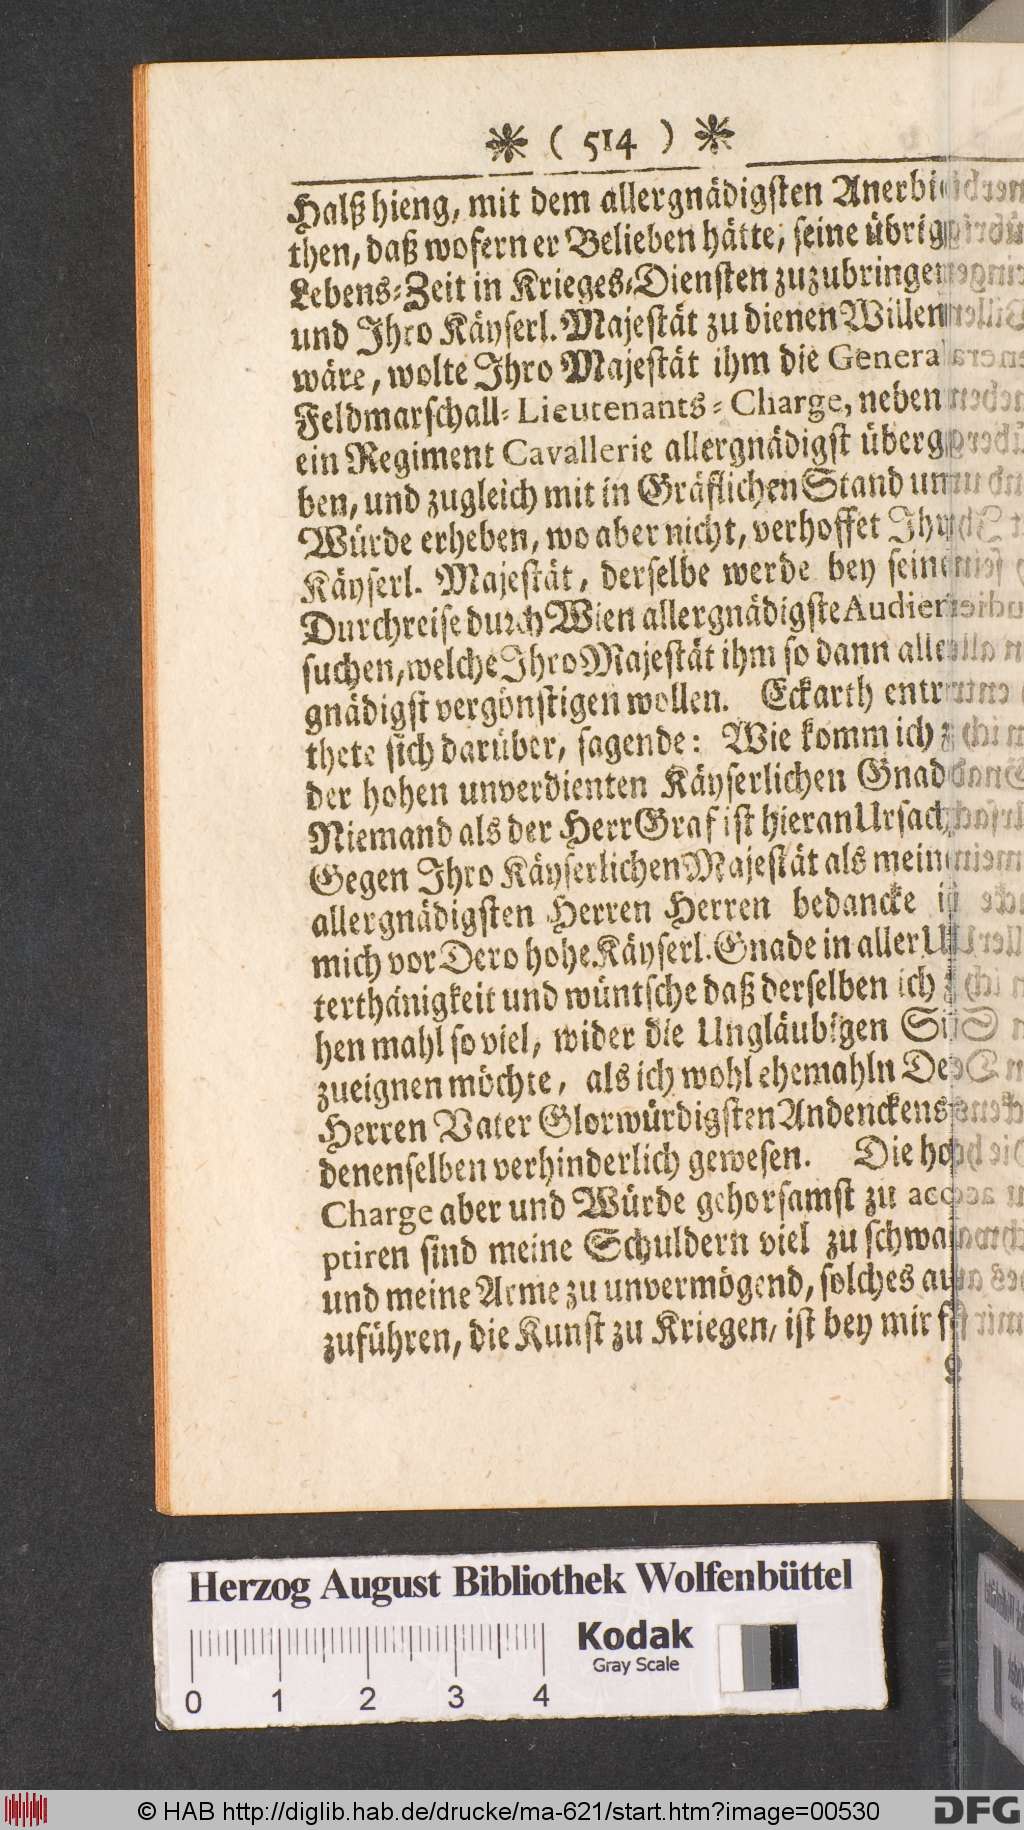 * ( 514 ) *
Halß hieng, mit dem allergnädigsten Anerbie
then, daß wofern er Belieben hätte, seine übrig
Lebens-Zeit in Krieges-Diensten zuzubringen
und Ihro Käyserl. Majestät zu dienen Willen
wäre, wolte Ihro Majestät ihm die General
Feldmarschall-Lieutenants-Charge, neben
ein Regiment Cavallerie allergnädigst überg
ben, und zugleich mit in Gräflichen Stand un
Würde erheben, wo aber nicht, verhoffet Ihr
Käyserl. Majestät, derselbe werde bey seine
Durchreise durch Wien allergnädigste Audien
suchen, welche Ihro Majestät ihm so dann aller
gnädigst vergönstigen wollen. Eckarth entr
thete sich darüber, sagende: Wie komm ich z
der hohen unverdienten Käyserlichen Gnad
Niemand als der Herr Graf ist hieran Ursach
Gegen Ihro Käyserlichen Majestät als mein
allergnädigsten Herren Herren bedancke i
mich vor Dero hohe Käyserl. Gnade in aller U
terthänigkeit und wüntsche daß derselben ich z
hen mahl so viel, wider die Ungläubigen Si
zueignen möchte, als ich wohl ehemahln De
Herren Vater Glorwürdigsten Andenckens
denenselben verhinderlich gewesen. Die ho
Charge aber und Würde gehorsamst zu acce
ptiren sind meine Schuldern viel zu schwa
und meine Arme zu unvermögend, solches au
zuführen, die Kunst zu Kriegen, ist bey mir
Herzog August Bibliothek Wolfenbüttel
Kodak
Gray Scale
0 1 2 3 4
© HAB http://diglib.hab.de/drucke/ma-621/start.htm?image=00530
DFG